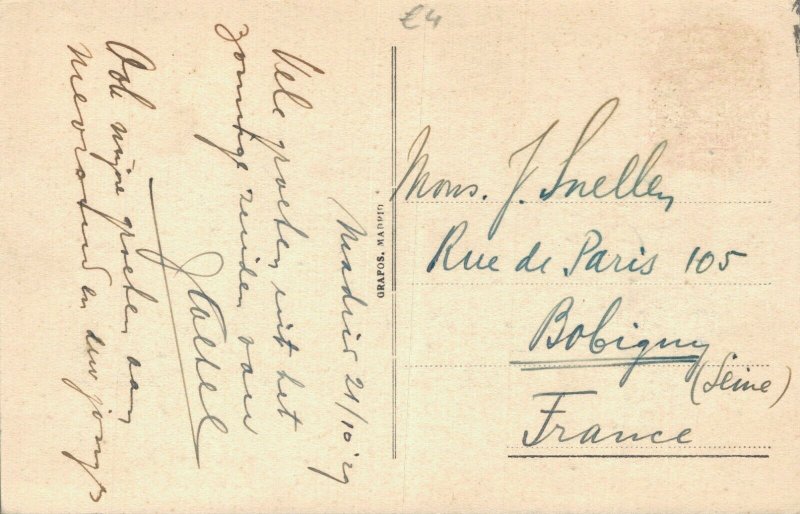 £4
Madrid 21/10 '29
Vele groeten uit het
zonnige zuiden van
Ook mijne groeten aan
mevrouw en den jongs
GRAFOS. MADRID
Mons. J. Snellen
Rue de Paris 105
Bobigny
(Seine)
France